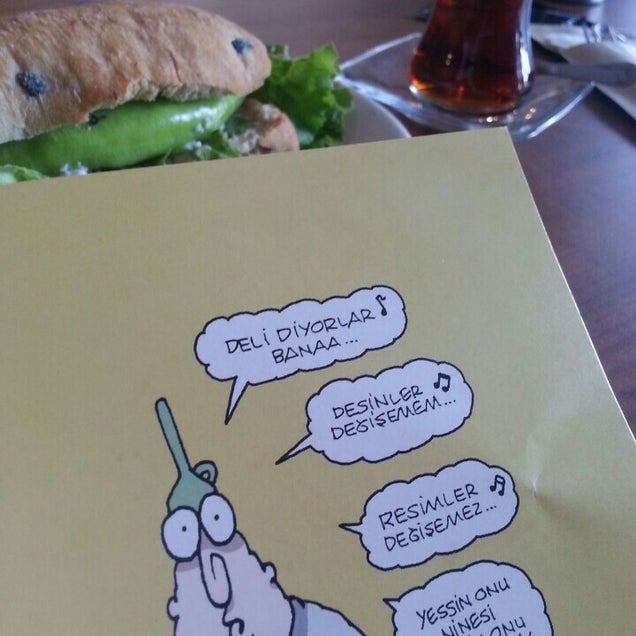 DELİ DİYORLAR
BANAA...
DESİNLER
DEĞİŞEMEM...
RESİMLER
DEĞİŞEMEZ...
YESSİN ONU
NİNESİ
ONU